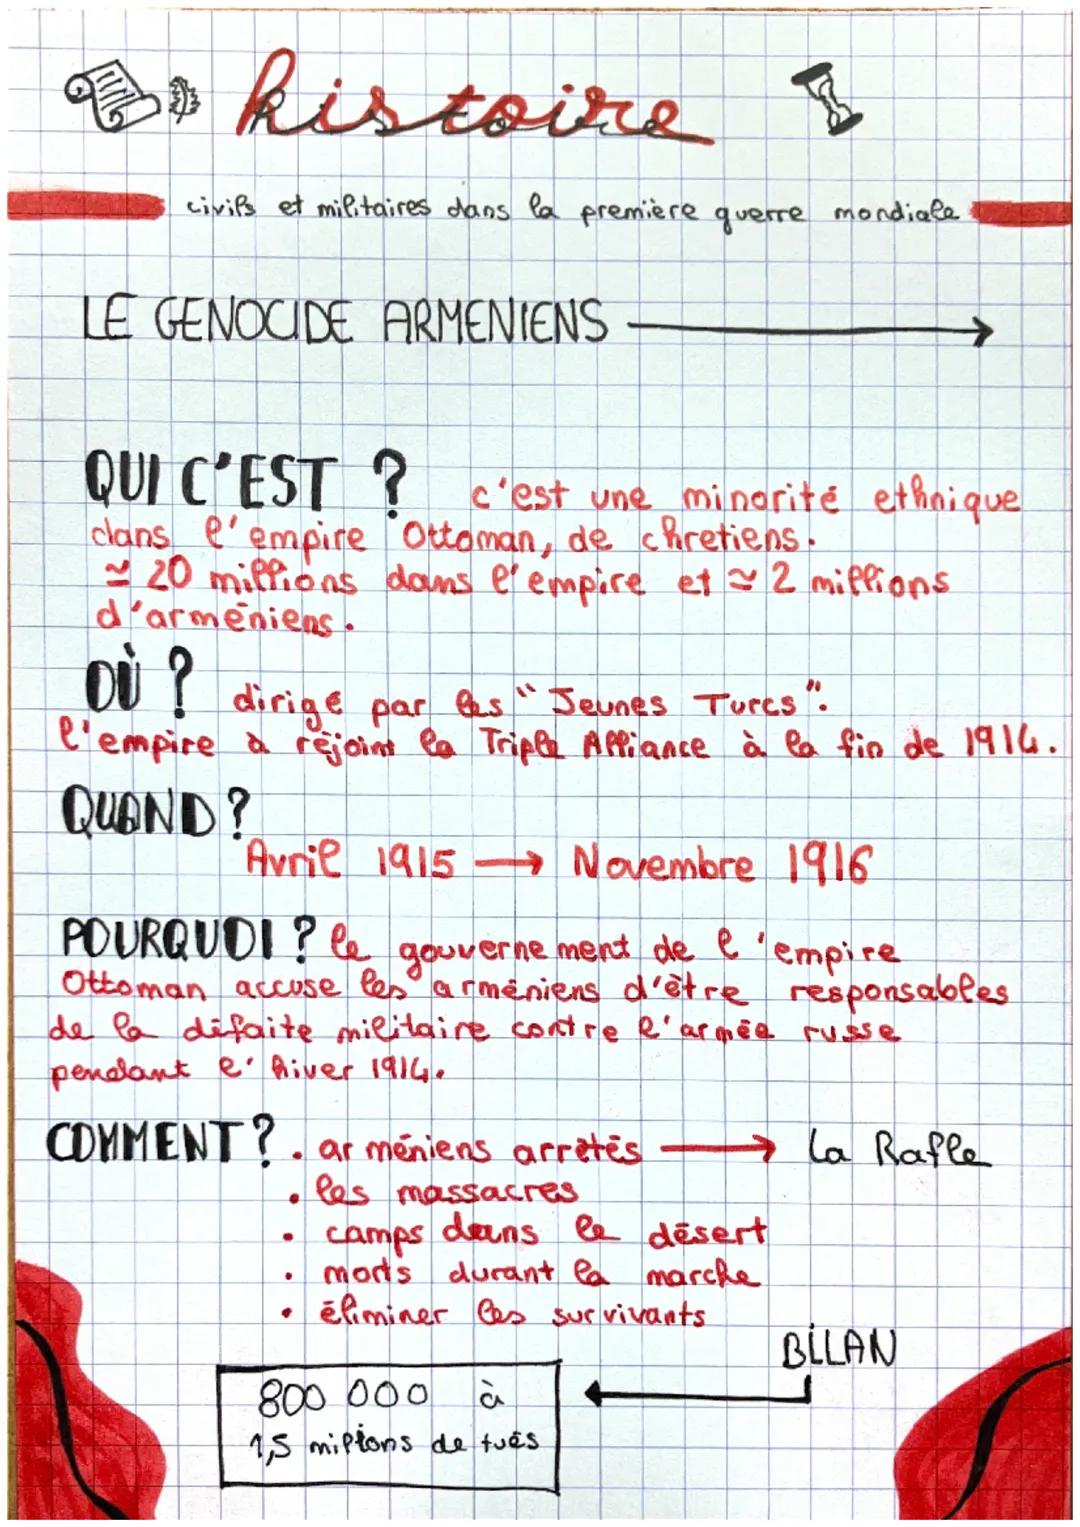 histoire
civils et militaires dans la première guerre mondiale
LE GENOCIDE ARMENIENS
QUI C'EST ? c'est une minorité ethnique
dans l'empire Ottoman, de chretiens.
≃ 20 millions dans l'empire et ≃ 2 millions
d'arméniens.
OÙ ? dirigé par les "Jeunes Turcs".
l'empire à réjoint la Triple Alliance à la fin de 1914.
QUAND ?
Avril 1915 → Novembre 1916
POURQUOI ? le gouvernement de l'empire
Ottoman accuse les arméniens d'être responsables
de la défaite militaire contre l'armée russe
pendant l'hiver 1914.
COMMENT ? . arméniens arrêtés → la Rafle
• les massacres
• camps dans le désert
• morts durant la marche
• éliminer les survivants
BILAN
800 000 à
1,5 milions de tués